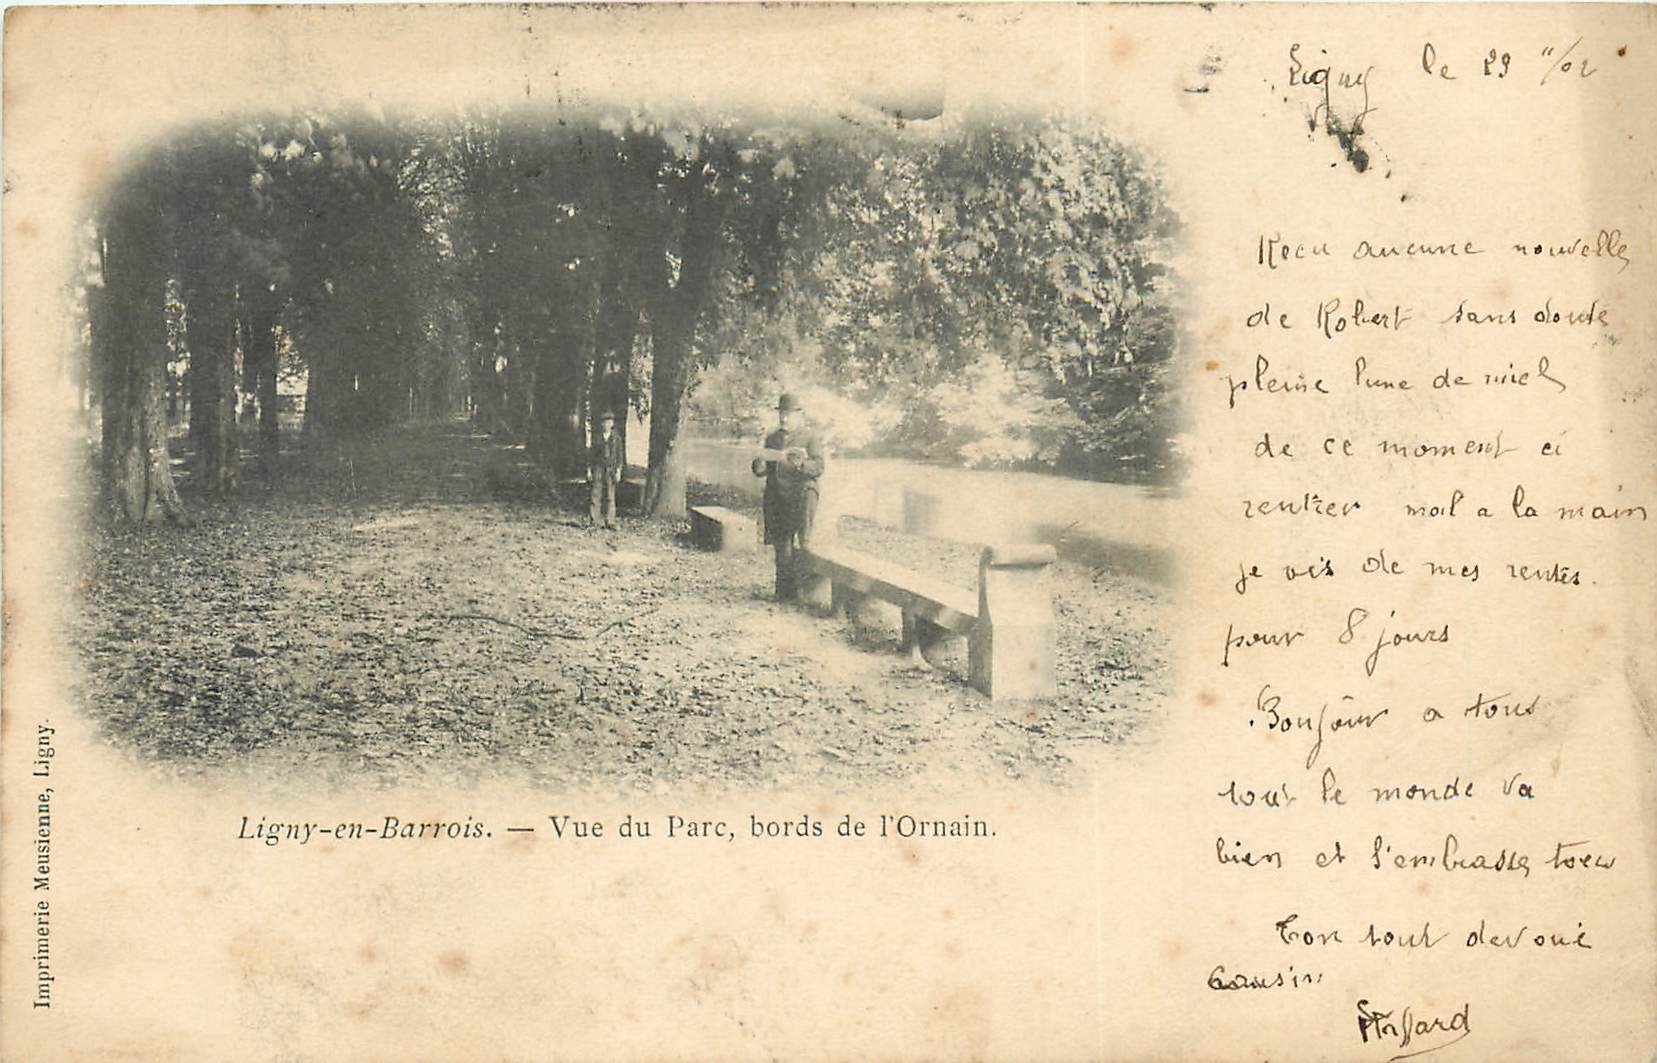 Ligny le 29 11/02
Recu aucune nouvelle
de Robert sans doute
pleine lune de miel
de ce moment ci
rentier mal a la main
je vis de mes rentes.
pour 8 jours
Bonjour a tous
tout le monde va
bien et s'embrasse tous
Ton tout devoué
Cousin
Ligny-en-Barrois. — Vue du Parc, bords de l'Ornain.
Imprimerie Meusienne, Ligny.